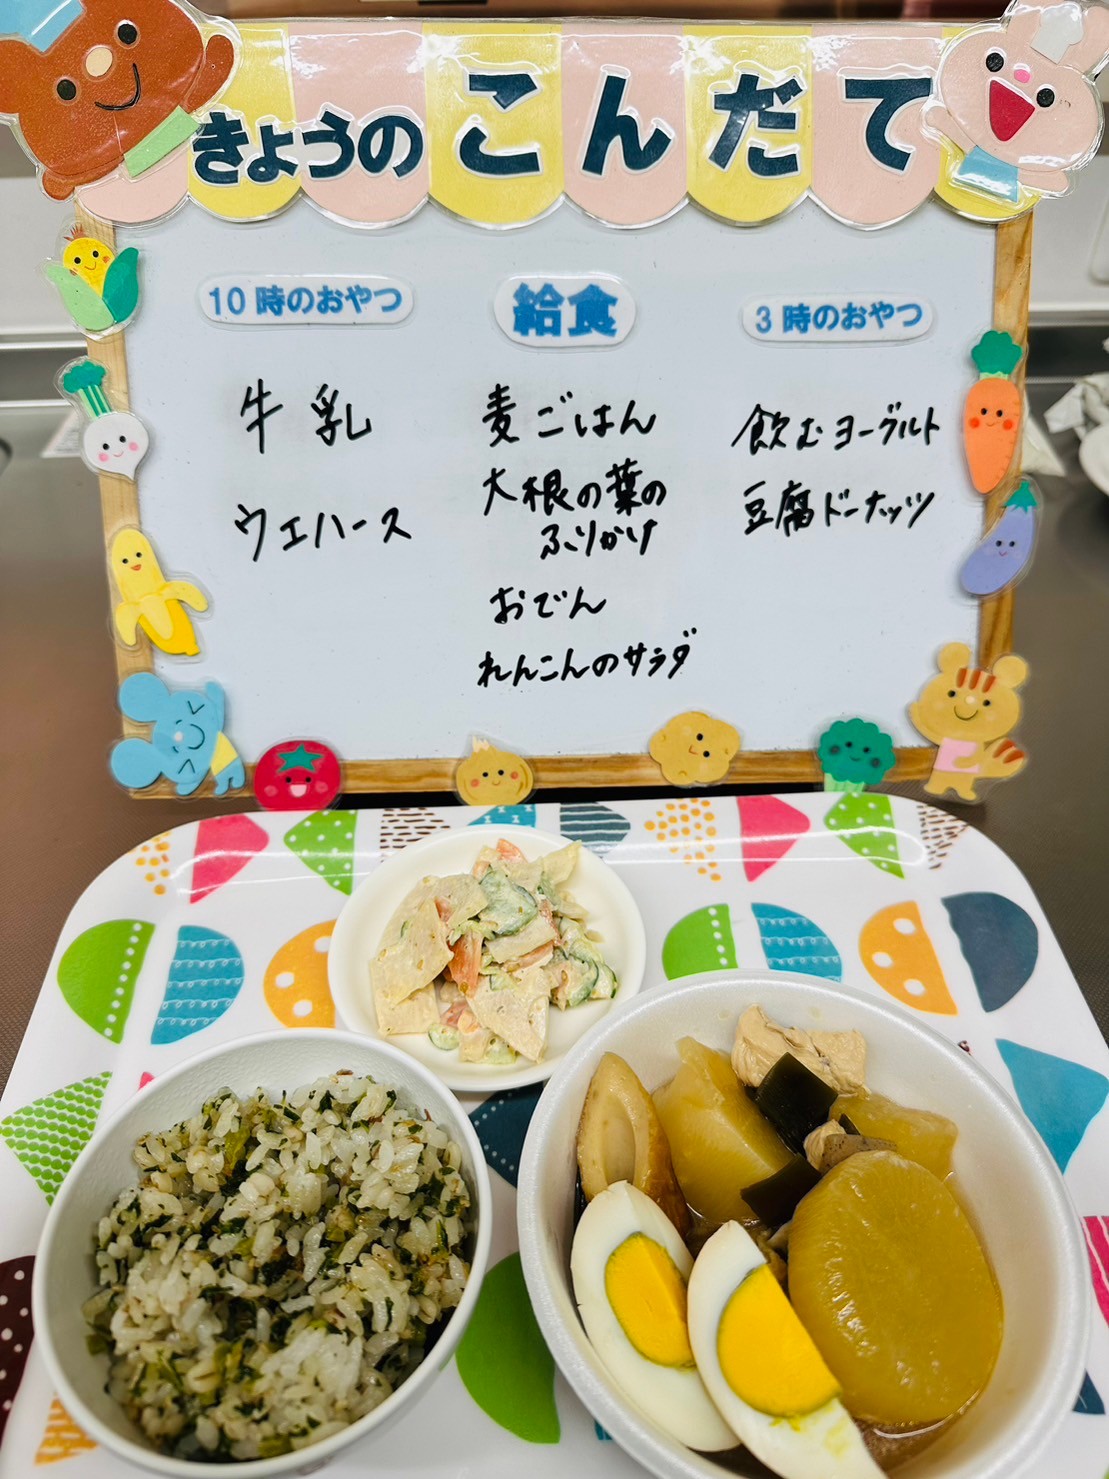 きょうの こんだて
10時のおやつ
牛乳
ウエハース
給食
麦ごはん
大根の葉の
ふりかけ
おでん
れんこんのサラダ
3時のおやつ
飲むヨーグルト
豆腐ドーナッツ